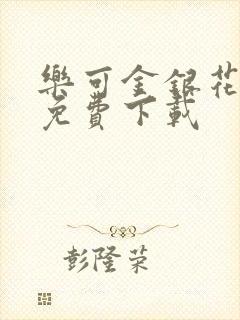 樂可金銀花
免費下載
彭隆荣